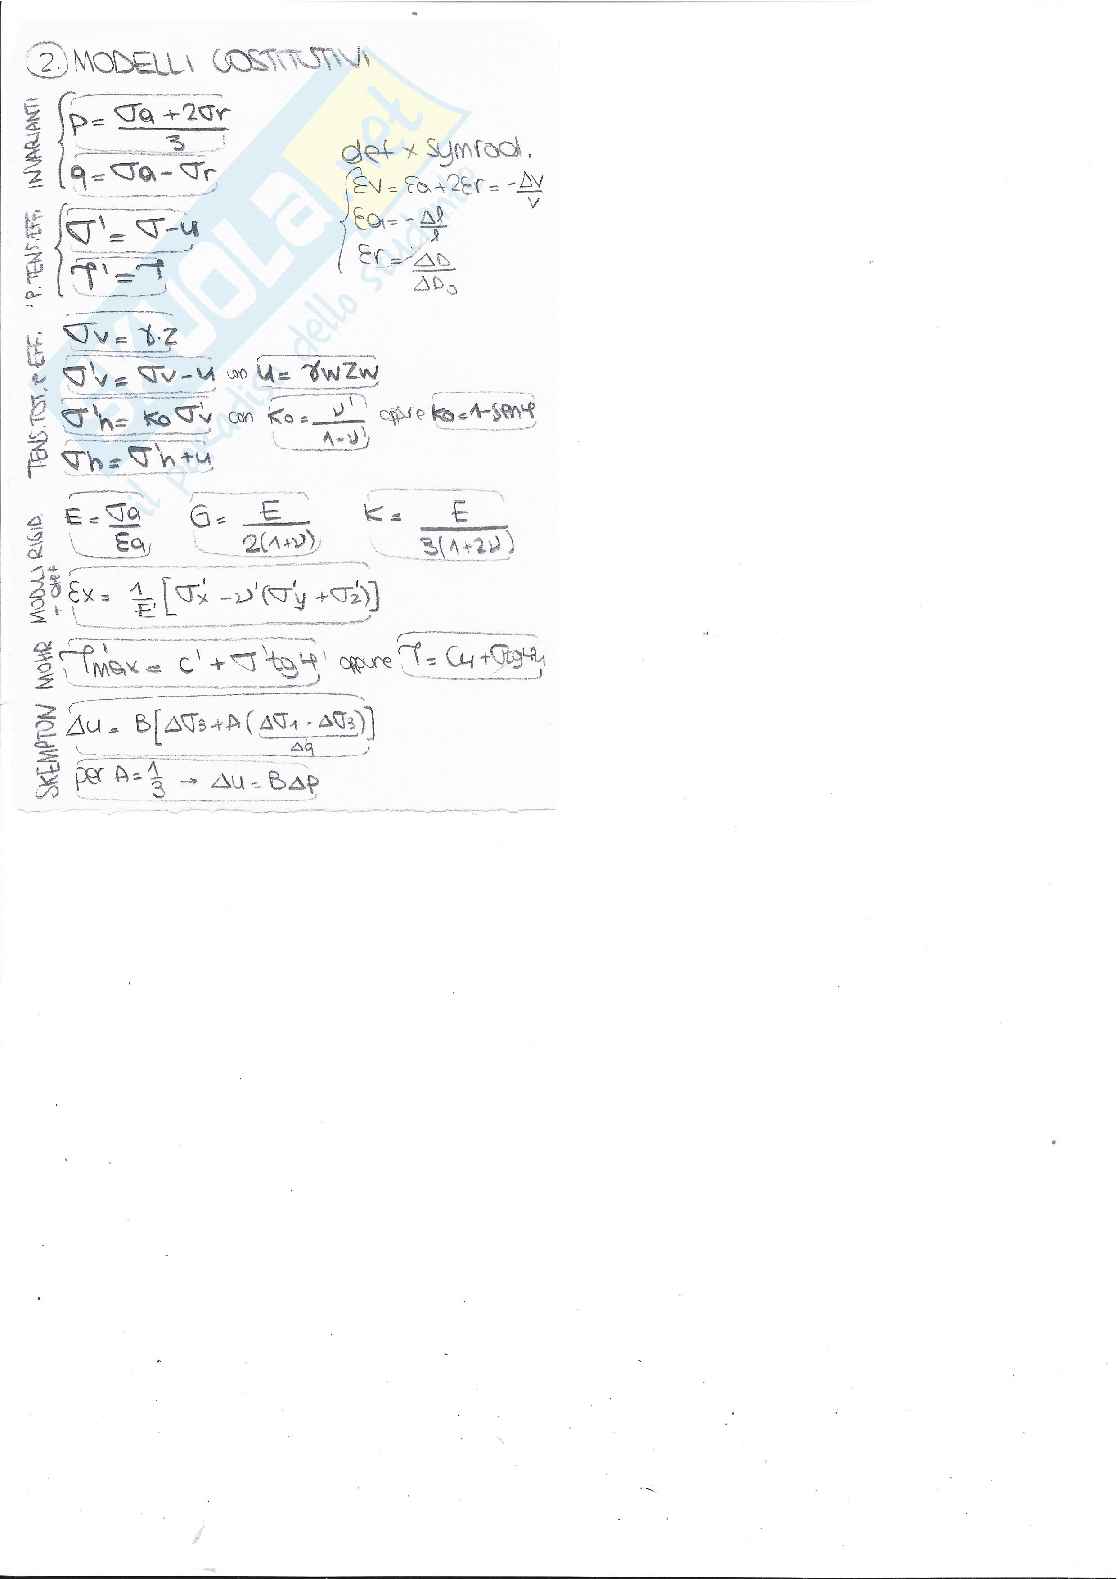 2. MODELLI COSTITUTIVI
INVARIANTI
p = σa + 2σr / 3
q = σa - σr
def x symrad.
εv = εa + 2εr = - ΔV / V
εa = - Δl / l
εr = ΔD / ΔD₀
P. TENS. EFF.
σ' = σ - u
τ' = τ
TENS. TOT. e EFF.
σv = γ·z
σ'v = σv - u con u = γw zw
σ'h = k₀ σ'v con k₀ = ν' / 1-ν' oppure k₀ = 1 - sen φ
σh = σ'h + u
MODULI RIGID. + def
E = σa / εa G = E / 2(1+ν) K = E / 3(1+2ν)
εx = 1/E' [σ'x - ν'(σ'y + σ'z)]
MOHR
τ'max = c' + σ' tg φ' oppure τ = cu + σ tg φu
SKEMPTON
Δu = B[Δσ3 + A(Δσ1 - Δσ3)]
Δq
per A = 1/3 → Δu = BΔp
skuola.net
il paradiso dello studente